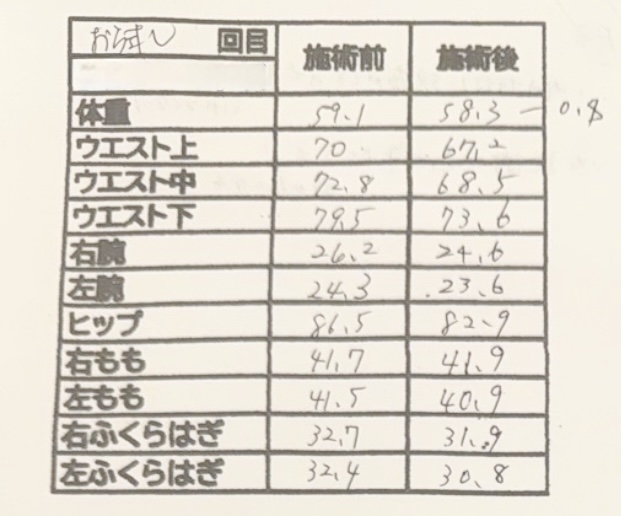 お試し 回目 施術前 施術後
体重 59.1 58.3 - 0.8
ウエスト上 70 67.2
ウエスト中 72.8 68.5
ウエスト下 79.5 73.6
右腕 26.2 24.6
左腕 24.3 23.6
ヒップ 86.5 82.9
右もも 41.7 41.9
左もも 41.5 40.9
右ふくらはぎ 32.7 31.9
左ふくらはぎ 32.4 30.8